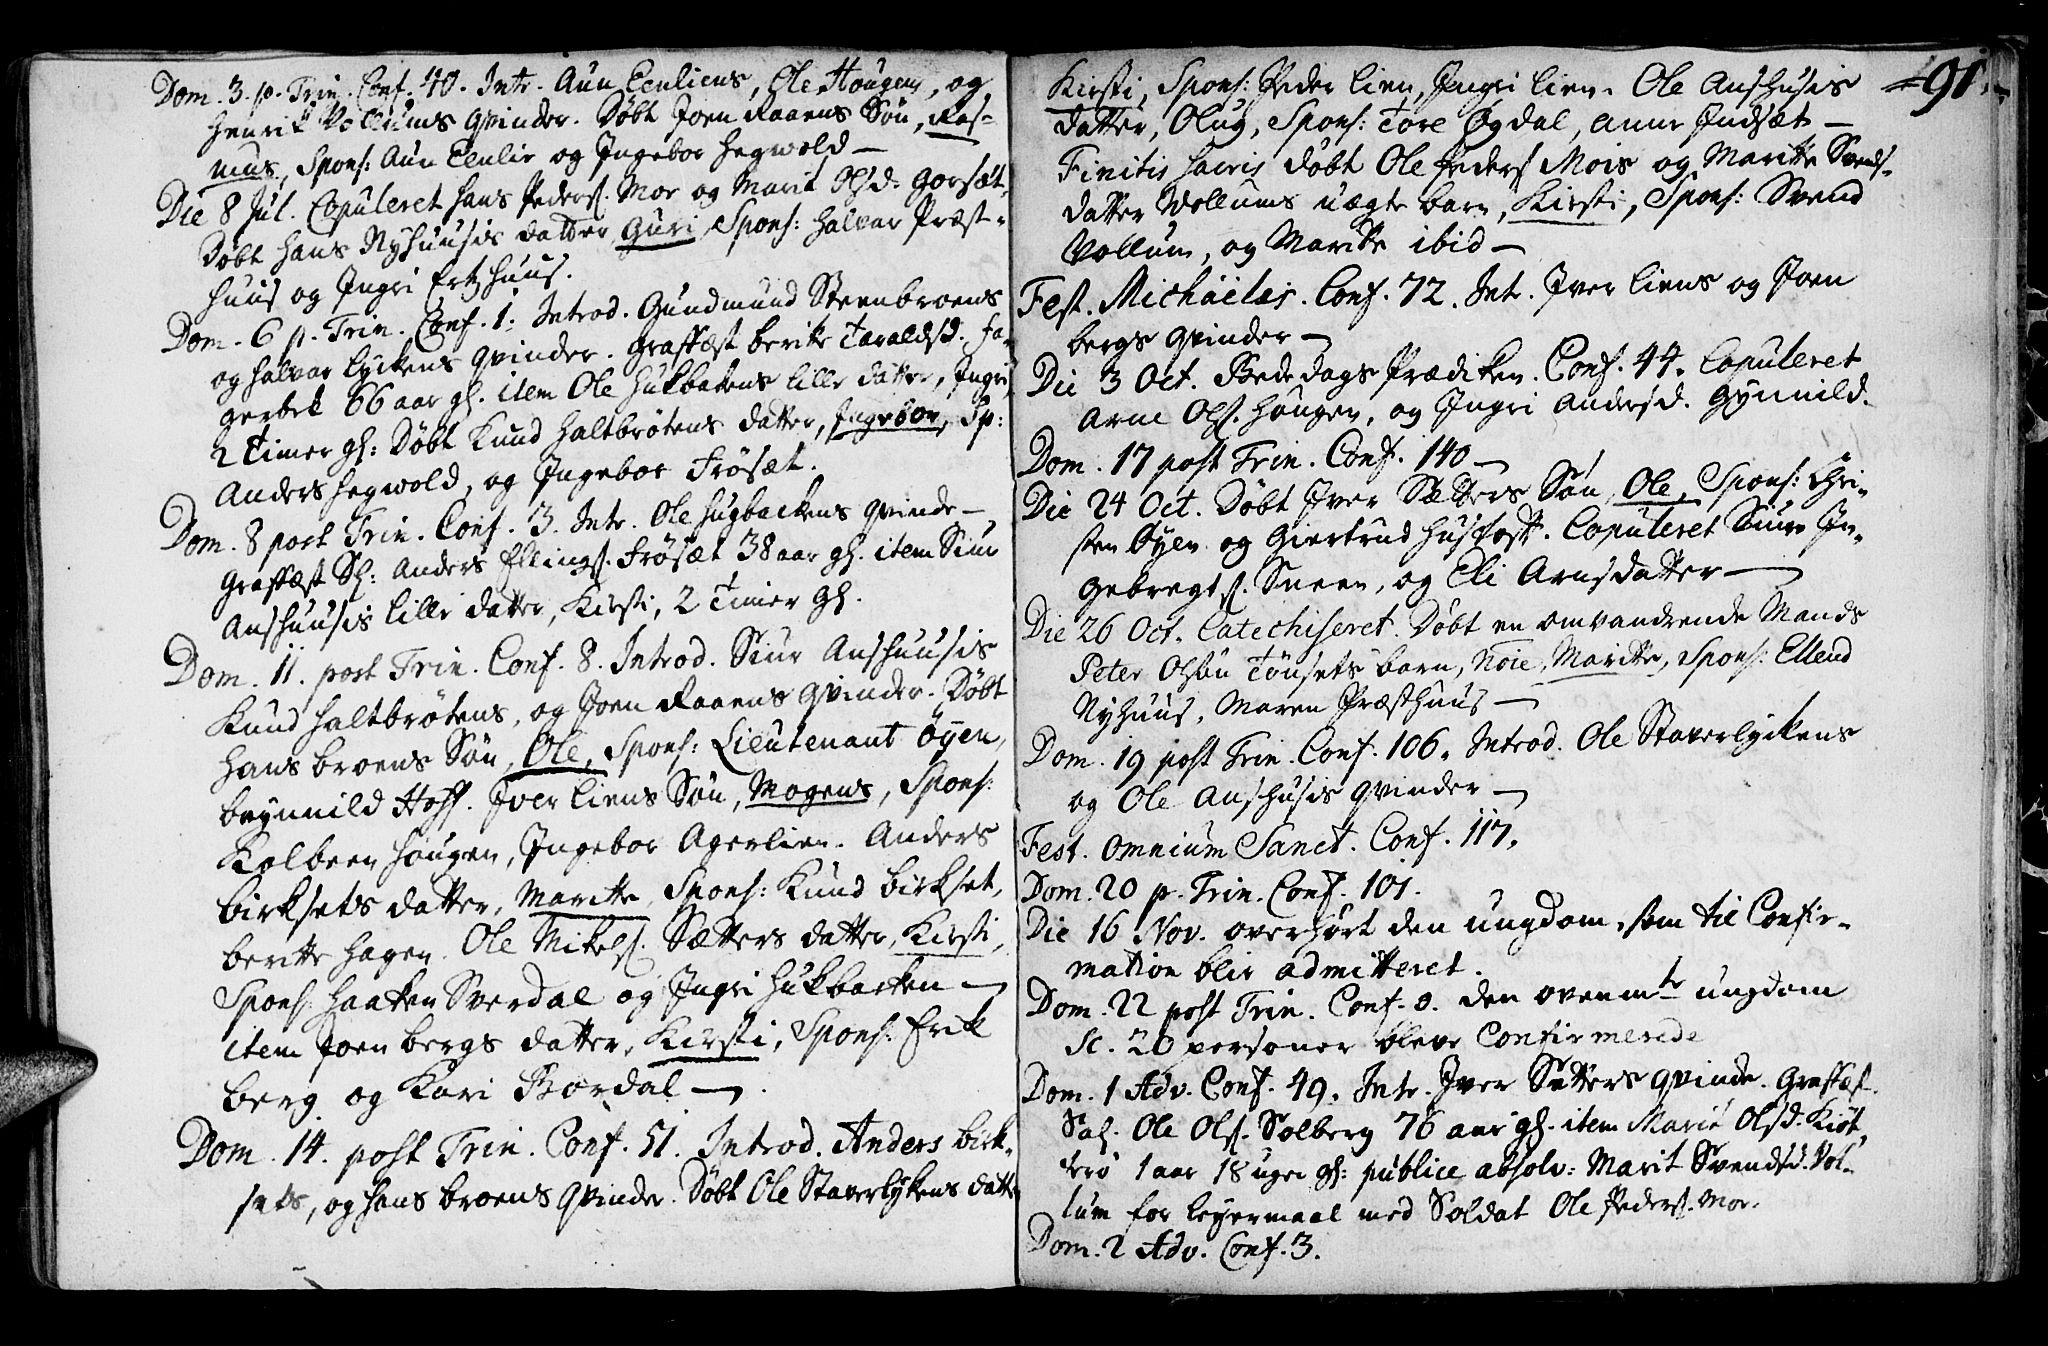 Dom. 3. p. Trin. Conf. 40. Intr. Aun Eenliens, Ole Hougens, og
Henrik Vollums qvinder. Døbt Joen Raaens Søn, Ras-
mus, Spons: Aun Eenlie og Ingebor Hegwold —
Die 8 Jul. Copuleret Hans Peders. Moe og Marit Olsd. Gorsæt,
Døbt Hans Nyhuusis datter Guri, Spons: Halvar Præst-
huus og Ingri Ertzhuus.
Dom. 6 p. Trin. Conf. 1. Introd. Gundmund Steenbroens
og Halvar Lyckens qvinder. Graffæst Beritte Taraldsd.
66 aar gl. item Ole Hukbakens lille datter, Ingri
2 Timer gl: Døbt Knud Haltbrøtens datter, Ingebor, Sp:
Anders Hegwold, og Ingebor Frøsæt.
Dom. 8 post Trin. Conf. 3. Intr. Ole Hugbackens qvinde —
Graffæst Sl: Anders Ellings. Frøsæt 38 aar gl. item Siur
Aushuusis lille datter, Kirsti, 2 Timer gl.
Dom. 11. post Trin. Conf. 8. Introd. Siur Aushuusis
Knud Haltbrøtens, og Joen Raaens qvinder. Døbt
Hans Broens Søn, Ole, Spons: Lieutenant Øyen,
Brynnild Hoff. Iver Liens Søn, Mogens, Spons:
Kolbeen Hougen, Ingebor Agerlien. Anders
Birksets datter, Maritte, Spons: Knud Birkset,
Beritte Hagen. Ole Mikels. Sætters datter, Kirsti,
Spons: Haaken Sverdal og Ingri Hukbacken —
item Joen Bergs datter, Kirsti, Spons: Erik
Berg og Kari Bordal —
Dom. 14. post Trin. Conf. 51. Introd. Anders Birk-
sets, og Hans Broens qvinder. Døbt Ole Staverlykens datter
91.
Kirsti, Spons: Peder Lien, Ingri Lien. Ole Aushusis
datter, Olug, Spons: Tore Øgdal, Anne Indsæt —
Finitis sacris døbt Ole Peders Mois og Maritte Svends-
datter Vollums uægte barn, Kirsti, Spons: Svend
Vollum, og Maritte ibid —
Fest. Michaelis. Conf. 72. Intr. Iver Liens og Joen
Bergs qvinder —
Die 3 Oct. Bededags Prædiken. Conf. 44. Copuleret
Arne Ols. Hougen, og Ingri Andersd. Gynnild.
Dom. 17 post Trin. Conf. 140 —
Die 24 Oct. Døbt Iver Sætters Søn, Ole, Spons: Chri-
sten Øyen og Giertrud Husfost. Copuleret Siur In-
gebregts. Sneen, og Eli Arnsdatter —
Die 26 Oct. Catechiseret. Døbt en omvandrende Mands
Peter Olsøn Tønsets barn, Maritte, Spons: Ellend
Nyhuus, Maren Præsthuus —
Dom. 19 post Trin. Conf. 106. Introd. Ole Staverlyckens
og Ole Aushusis qvinder —
Fest. Omnium Sanct. Conf. 117.
Dom. 20 p. Trin. Conf. 101.
Die 16 Nov. overhørt den ungdom, som til Confir-
mation blir admitteret.
Dom. 22 post Trin. Conf. 0. den ovenmte ungdom
sc. 20 personer bleve Confirmerede
Dom. 1 Adv. Conf. 49. Intr. Iver Sætters qvinde. Graffæst.
Sal. Ole Ols. Solberg 76 aar gl. item Marit Olsd. Kiøt
1 aar 18 uger gl: publice absolv: Marit Svendsd. Vol-
lum for Leyermaal med Soldat Ole Peders. Moe.
Dom. 2 Adv. Conf. 3.